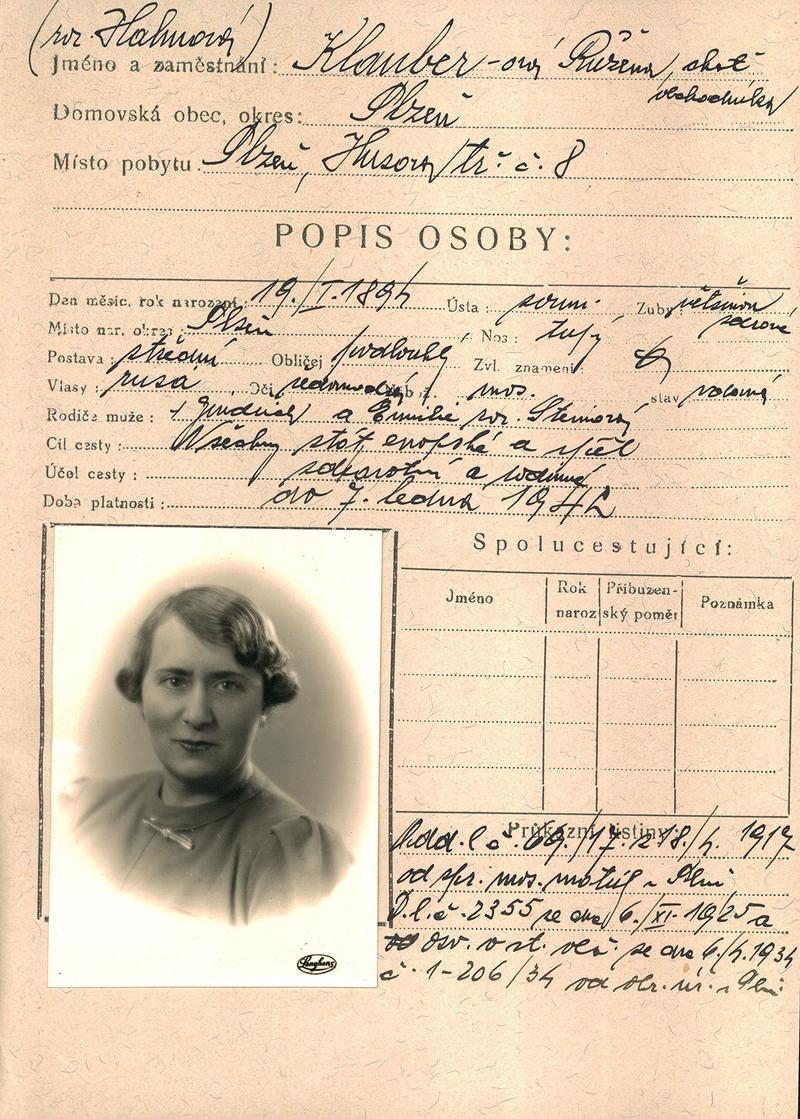 (roz. Hahnová)
Jméno a zaměstnání: Klauber-ová Růžena, choť
obchodníka
Domovská obec, okres: Plzeň
Místo pobytu Plzeň, Husova tř. č. 8
POPIS OSOBY:
Den měsíc, rok narození: 19./I. 1894 Ústa: soum. Zuby: většinou
zdravé
Místo nar. okres Plzeň Nos: tupý
Postava: střední Obličej podlouhlý Zvl. znamení:
Vlasy: rusá Oči šedomodrý mos. stav vdaná
Rodiče muže: Jindřich a Emilie roz. Steinová
Cíl cesty: Všechny stát. evropské a zpět
Účel cesty: zdravotní a rodinné
Doba platnosti: do 7. ledna 1942
Spolucestující:
Jméno Rok naroz Příbuzenský poměr Poznámka
Průkazní listiny:
Odd. l. č. 69./17. 1917
od spr. mos. matrik v Plzni
D.l.č. 2355 ze dne 6./XI. 1925 a
osv. o st. obč. ze dne 1934
č. 1-206/34 od okr. úř. v Plzni
Langhans